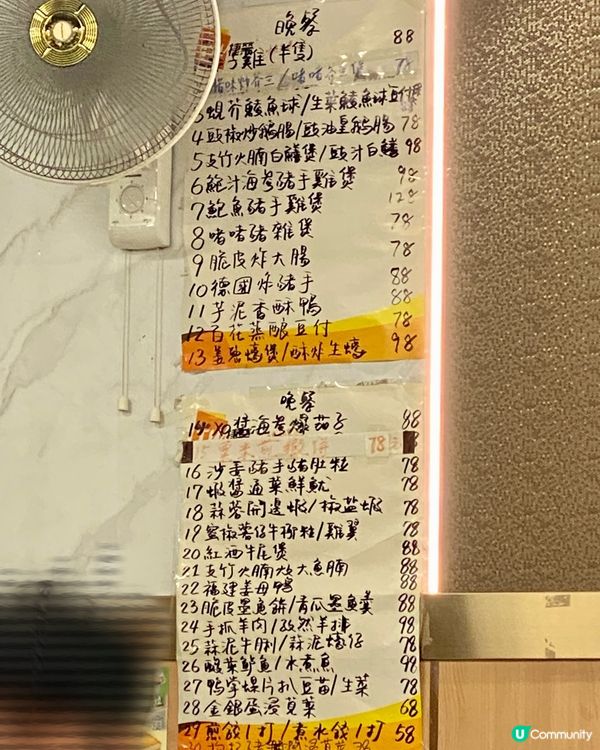 晚餐
雞(半隻) 88
78
3 蜆芥鯪魚球/生菜鯪魚球豆付煲
4 豉椒炒鵝腸/豉油皇鵝腸 78
5 支竹火腩白鱔煲/豉汁白鱔 98
6 鮑汁海參豬手雞煲 98
7 鮑魚豬手雞煲 128
8 啫啫豬雜煲 78
9 脆皮炸大腸 78
10 德國炸豬手 88
11 芋泥香酥鴨 88
12 百花蒸釀豆付 78
13 姜蔥蠔煲/酥炸生蠔 98
晚餐
14 XO醬海參爆茄子 88
15 78
16 沙姜豬手豬肚粒 78
17 蝦醬通菜鮮魷 78
18 蒜蓉開邊蝦/椒鹽蝦 78
19 蜜椒薯仔牛柳粒/雞翼 78
20 紅酒牛尾煲 88
21 支竹火腩炆大魚腩 88
22 福建姜母鴨 88
23 脆皮墨魚餅/青瓜墨魚羹 88
24 手抓羊肉/孜然羊排 98
25 蒜泥牛脷/蒜泥蟶仔 78
26 酸菜鲈魚/水煮魚 98
27 鴨掌螺片扒豆苗/生菜 78
28 金銀蛋浸莧菜 68
29 煎餃1打/煮水餃1打 58
30
U Community